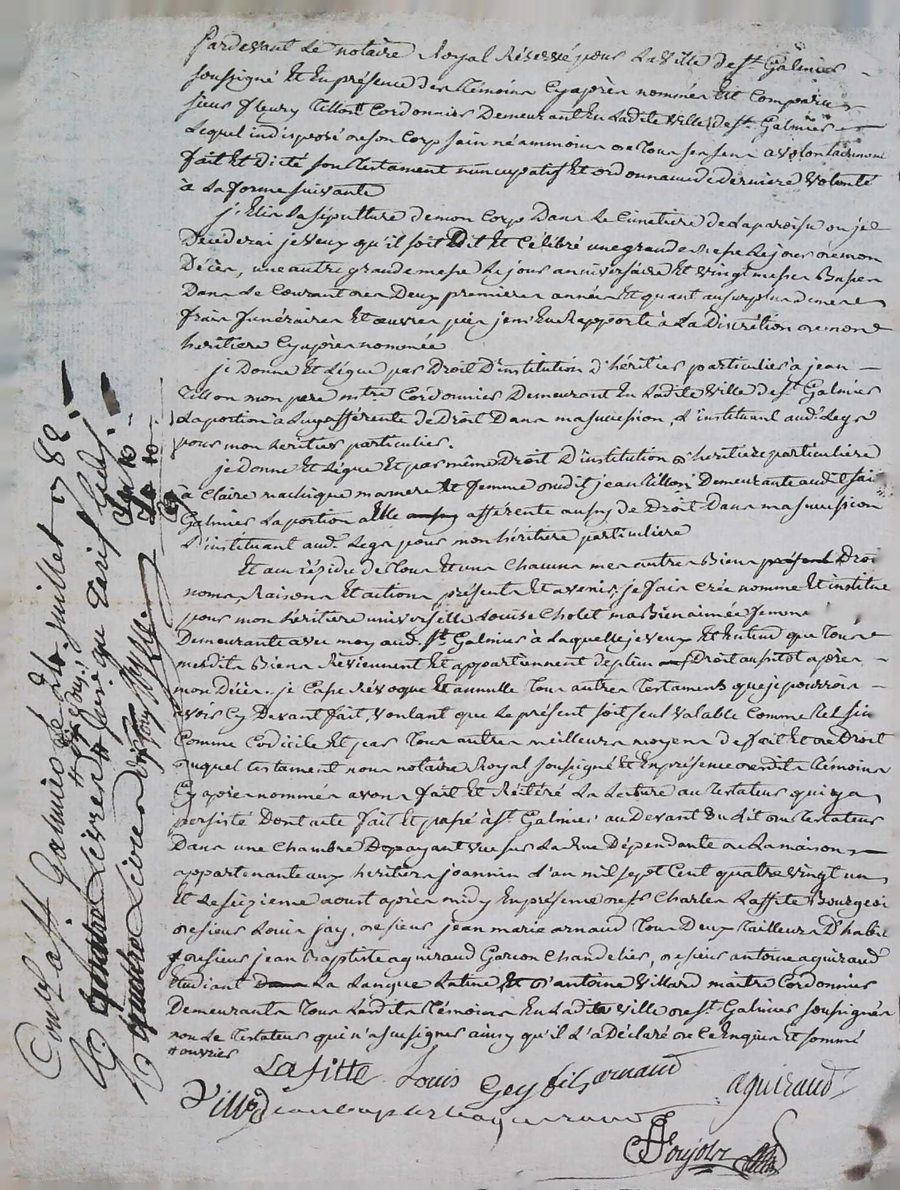 Pardevant Le notaire Royal Réservé pour La Ville de st. Galmier
soussigné Et En présence des témoins Cyaprès nommés Est Comparu
sieur fleury tillon Cordonnier Demeurant En Ladite Ville de st. Galmier
Lequel indisposé de son Corp sain néammoins de tous ses sens a volontairement
fait Et Dicté son testament nuncupatif Et ordonnance de dernière Volonté
à La forme suivante
j'Elis La sépulture de mon Corp Dans Le Cimetiere de La paroisse ou je
Décéderai je veux qu'il soit Dit Et Célébré une grande messe Le jour de mon
Décès, une autre grande messe Le jour anniversaire Et vingt messes Basses
Dans Le Courant des Deux premieres années Et quant au surplus de mes
frais funéraires Et œuvres pies je m'En Rapporte à La Discrétion de mon
heritiere Cyaprès nommée
je Donne Et Légue par Droit D'institution d'héritier particulier à jean
tillon mon pere Cordonnier Demeurant En Ladite Ville de st. Galmier
La portion à Luy afférente de Droit Dans ma succession, L'instituant aud. Legs
pour mon héritier particulier.
je donne Et Légue Et par même Droit D'institution d'heritiere particuliere
à Claire ma mere Et femme dudit jean tillon Demeurante audit st
Galmier La portion a Elle afférente aussy de Droit Dans ma succession
L'instituant aud. Legs pour mon héritiere particuliere
Et au résidu de tous Et uns Chacuns mes autres Biens Droi
noms, Raisons Et actions présents Et avenir, je fais crée nomme Et institue
pour mon héritiere universelle Louise Cholet ma Bien aimée femme
Demeurante avec moy aud. st. Galmier à Laquelle je veux Et Entend que tous
mesdits Biens Reviennent Et appartiennent de plein Droit aussitot après
mon Décès. je Casse Révoque Et annulle tous autres testaments que je pourrois
avoir Cy Devant fait, voulant que Le présent soit seul valable Comme tel sin
Comme Codicile Et par tous autres meilleurs moyens de fait Et de Droit
duquel testament nous notaire Royal soussigné Et En présence desdits témoins
Cyaprès nommés avons fait Et Réitéré La Lecture au testateur qui y a
persisté Dont acte fait Et passé à st. Galmier au Devant du Lit du testateur
Dans une Chambre prenant vue sur La Rue Dépendante de La maison
appartenante aux heritiers joannin L'an mil sept Cent quatre vingt un
Et Le sezieme aoust après midy En présence de sr. Charles Laffitte Bourgeois
de sieur Louis jay, de sieur jean marie arnaud tous Deux tailleurs D'habit
de sieur jean Baptiste aguiraud Garçon Chandelier, de sieur antoine aguiraud
Etudiant La Langue Latine, Et d'antoine Villard maitre Cordonnier
Demeurants tous Lesdits témoins En Ladite Ville de st. Galmier soussignés
non Le testateur qui n'a su signer ainsy qu'il L'a Déclaré de ce Enquis Et sommé
ouvrier
Lafitte Louis Gey fils arnaud aguiraud
Villard jean baptiste aguiraud
Conlé à st Galmier Le 20 juillet 1782
quatre Livres
quatre Livres